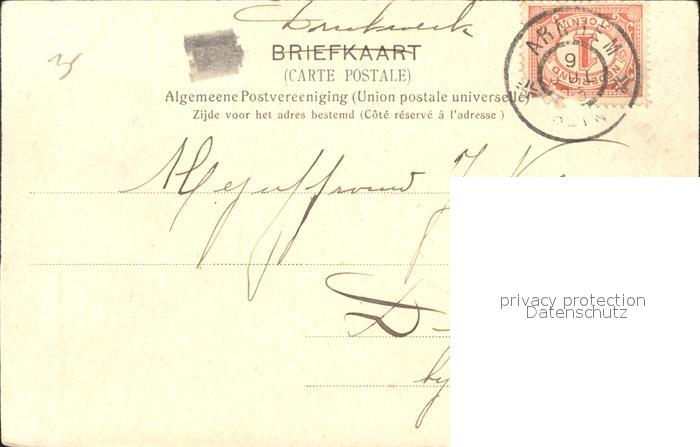 Drukwerk
BRIEFKAART
(CARTE POSTALE)
Algemeene Postvereeniging (Union postale universelle)
Zijde voor het adres bestemd (Côté réservé à l'adresse)
ARNHEM
1
CENT
Mejuffrouw J.
D
by
privacy protection
Datenschutz